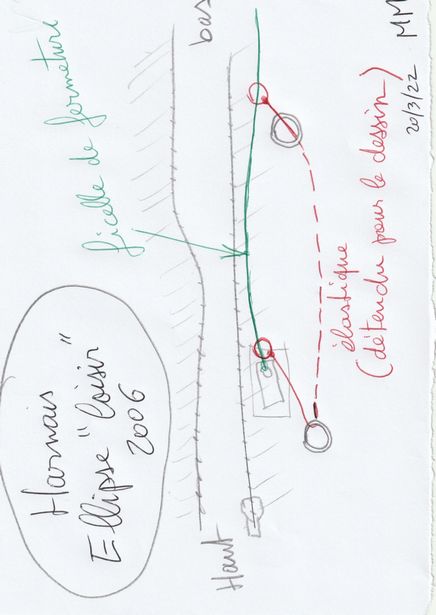 Harnais
Ellipse "Loisir"
2006
ficelle de fermeture
Haut
bas
élastique
(détendu pour le dessin)
20/3/22 MM